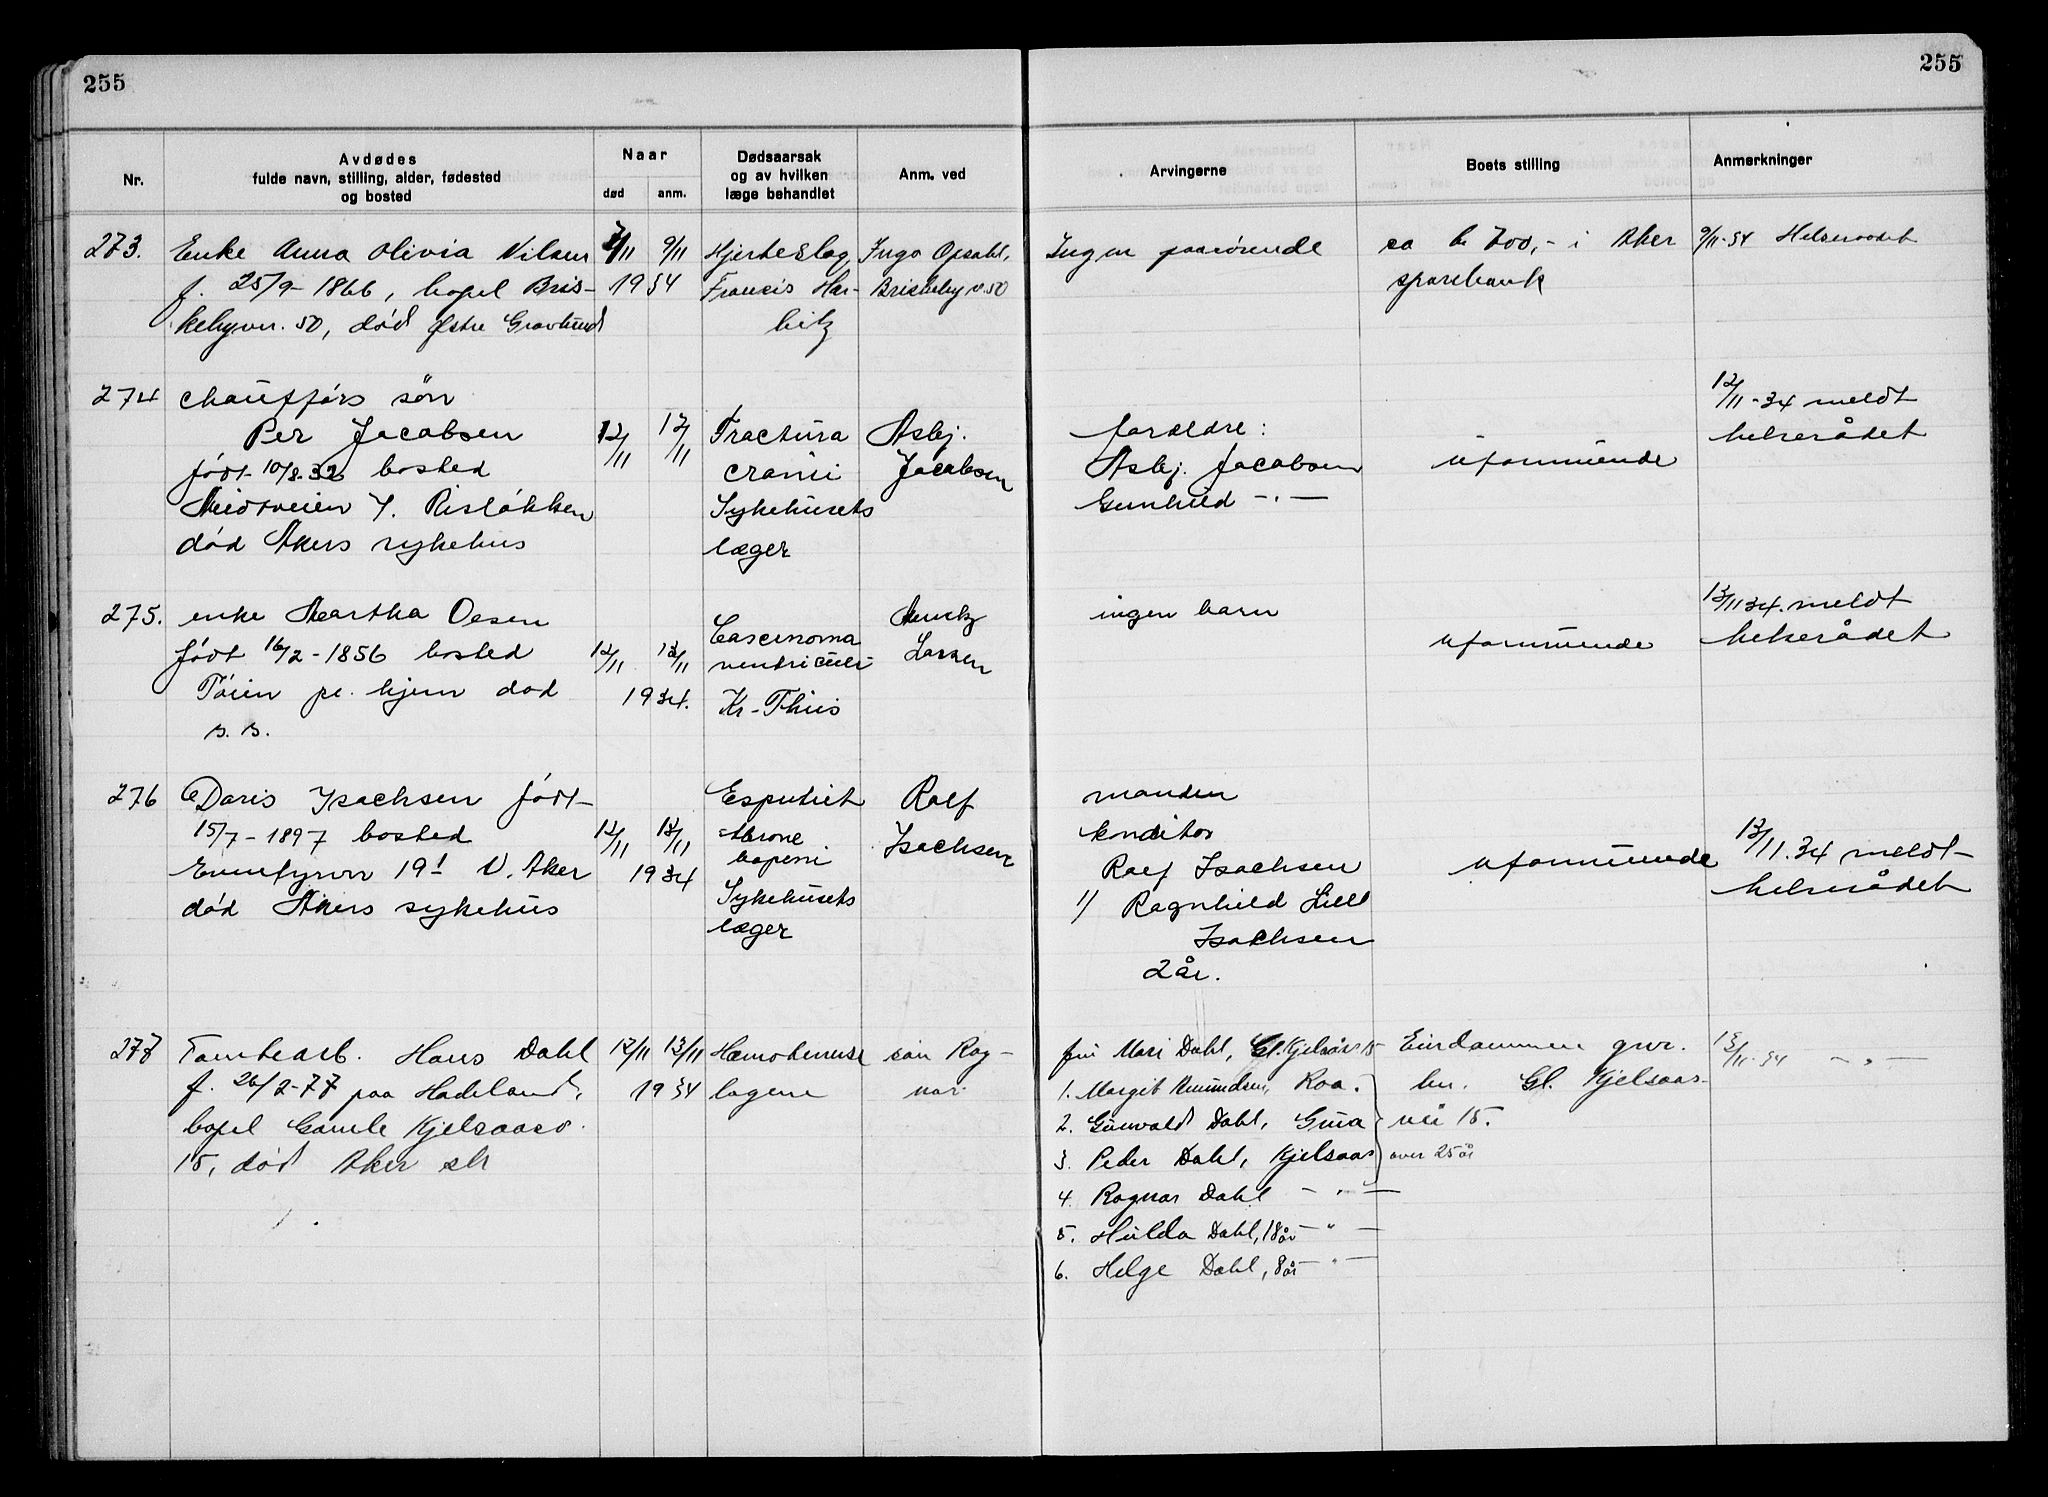 255
255
Nr.
Avdødes
fulde navn, stilling, alder, fødested
og bosted
Naar
død
anm.
Dødsaarsak
og av hvilken
læge behandlet
Anm. ved
Arvingerne
Boets stilling
Anmerkninger
273.
Enke Anna Olivia Nilsen
f. 25/9-1866, bopel Bris-
kebyvn. 50, død Østre Gravlund
7/11
9/11
1934
Hjerteslag
Francis Har-
bitz
Inga Opsahl,
Briskebyv. 50
Ingen paarørende
ca kr 700,- i Aker
sparebank
9/11-34 Helseraadet
274
chaufførs søn
Per Jacobsen
født 10/8-32 bosted
Risløkken
død Akers sykehus
12/11
12/11
Fractura
cranii
Sykehusets
læger
Asbj.
Jacobsen
forældre:
Asbj. Jacobsen
Gunhild -"-
uformuende
12/11-34 meldt
helserådet
275.
enke Martha Olsen
født 16/2-1856 bosted
Tøien pl. hjem død
s. s.
12/11
13/11
1934.
Carcinoma
ventriculi
Kr. Thuis
Larsen
ingen barn
uformuende
13/11 34. meldt
helserådet
276
Doris Isachsen født
15/7-1897 bosted
19! V. Aker
død Akers sykehus
12/11
13/11
1934
Sykehusets
læger
Rolf
Isachsen
manden
konditor
Rolf Isachsen
1/ Ragnhild Lill
Isachsen
2 år.
uformuende
13/11.34 meldt
helserådet
277
Tomtearb. Hans Dahl
f. 26/2-77 paa Hadeland,
bopel Gamle Kjelsaasv.
15, død Aker skh
12/11
13/11
1934
lægene
søn Rag-
nar
fru Mari Dahl, Gl. Kjelsåsv 15
1. Margit Amundsen, Roa.
2. Gunvald Dahl, Grua
3. Peder Dahl, Kjelsaas
4. Ragnar Dahl -"-
5. Hulda Dahl, 18 år -"-
6. Helge Dahl, 8 år -"-
over 25 år
Eiendommen gnr.
bnr. Gl. Kjelsaas-
vei 15.
13/11-34 -"-